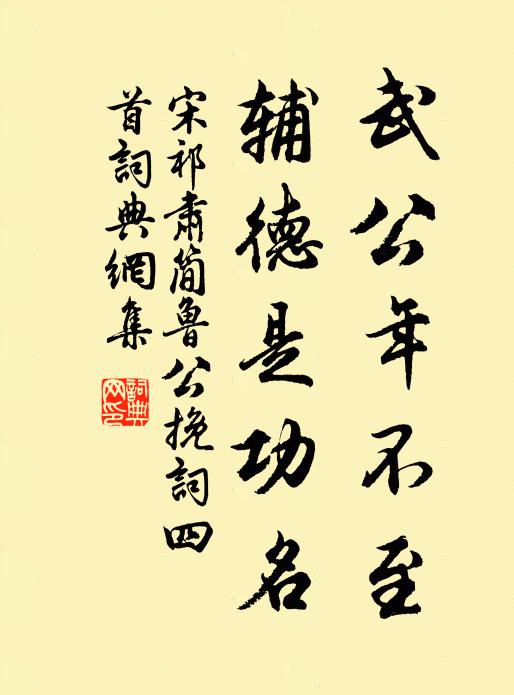 武公年不至
辅德是功名
宋祁肃简鲁公挽词四
首词典网集
词典网印